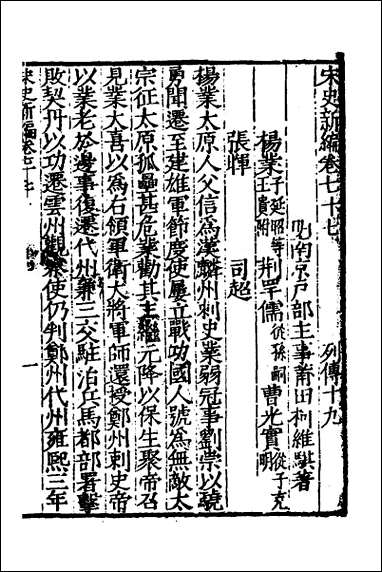 宋史新編卷七十七 列傳十九
南京戶部主事莆田柯維騏著
楊業子延昭等王貴附 荆罕儒從孫嗣 曹光實從子克明
張暉 司超
楊業太原人父信為漢麟州刺史業弱冠事劉崇以驍
勇聞遷至建雄軍節度使屢立戰功國人號為無敵太
宗征太原孤壘甚危業勸其主繼元降以保生聚帝召
見業大喜以為右領軍衛大將軍師還授鄭州刺史帝
以業老於邊事復遷代州兼三交駐治兵馬都部署擊
敗契丹以功遷雲州觀察使仍判鄭州代州雍熙三年
宋史新編卷七十七
一